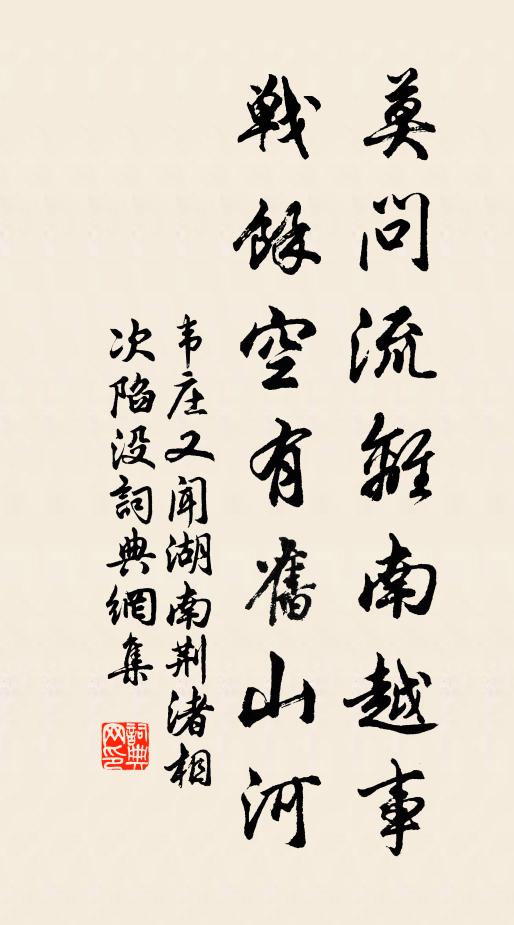 莫问流離南越事
戰餘空有舊山河
韦庄又闻湖南荆渚相
次陷没詞典網集
詞典
网印